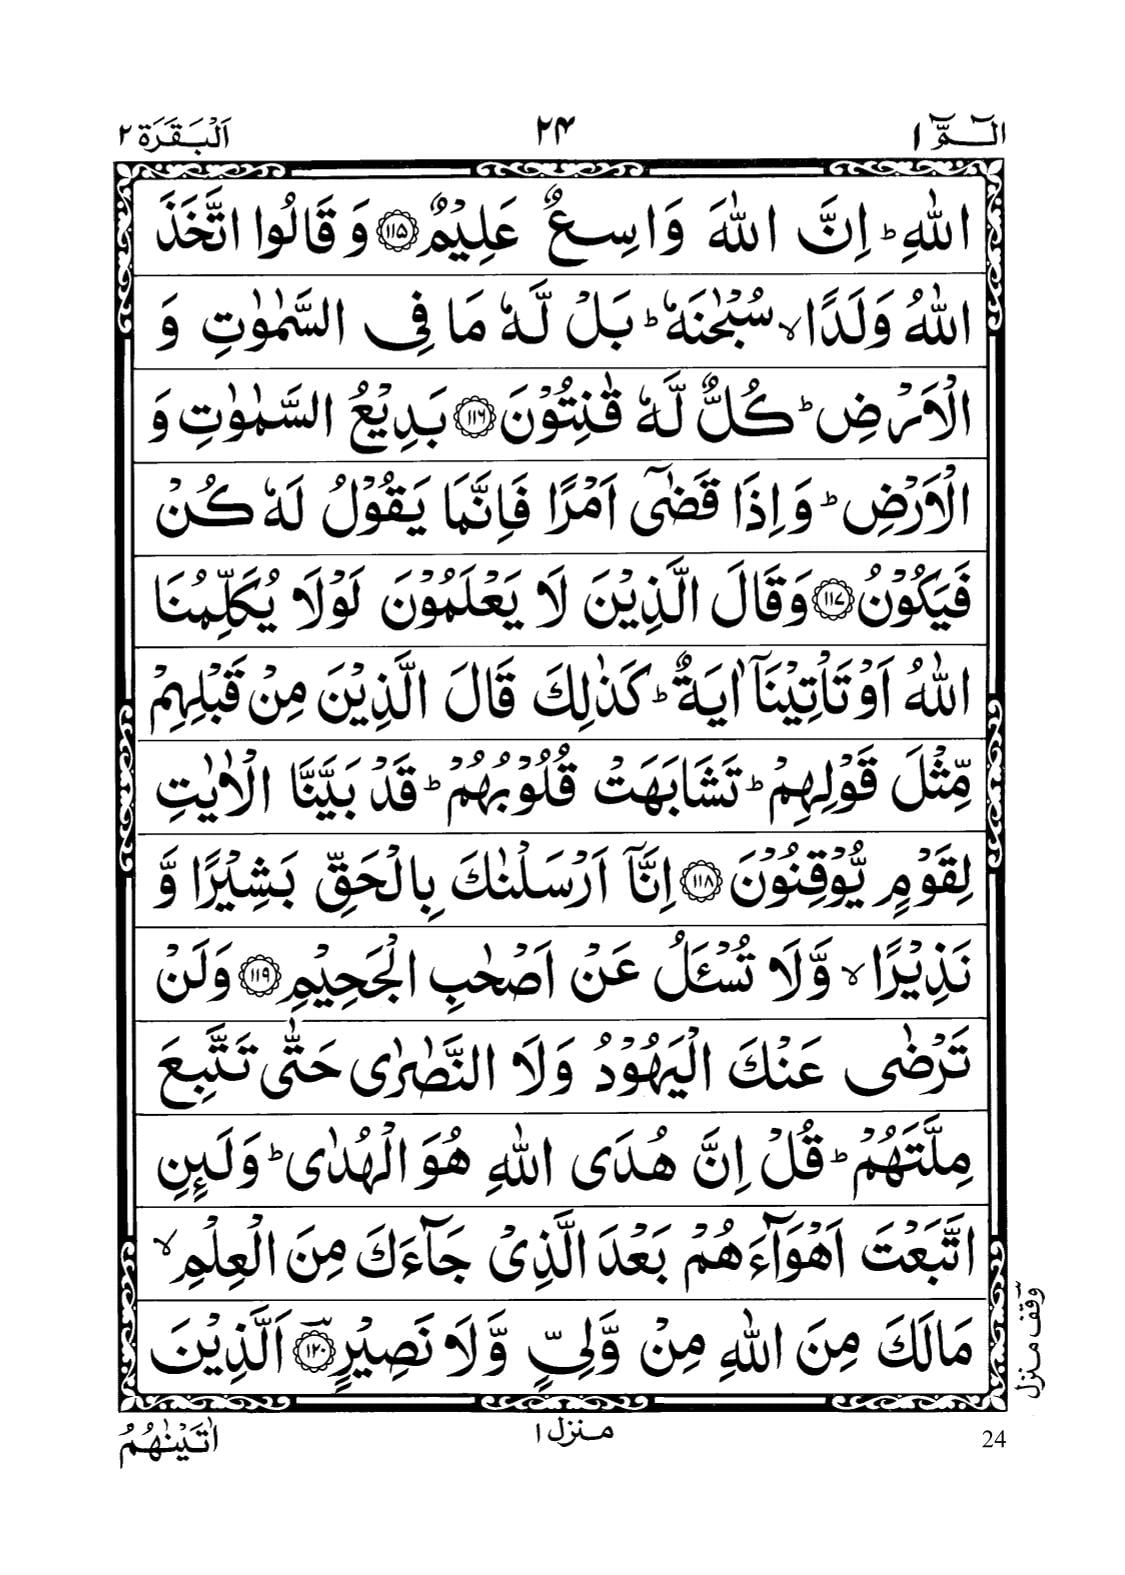 الٓـمّٓ ١
٢٤
اَلْبَقَرَة ٢
اللّٰهِ ؕ اِنَّ اللّٰهَ وَاسِعٌ عَلِيْمٌ ﴿۱۱۵﴾ وَ قَالُوا اتَّخَذَ
اللّٰهُ وَلَدًا ۙ سُبْحٰنَهٗ ؕ بَلْ لَّهٗ مَا فِى السَّمٰوٰتِ وَ
الْاَرْضِ ؕ كُلٌّ لَّهٗ قٰنِتُوْنَ ﴿۱۱۶﴾ بَدِيْعُ السَّمٰوٰتِ وَ
الْاَرْضِ ؕ وَاِذَا قَضٰۤى اَمْرًا فَاِنَّمَا يَقُوْلُ لَهٗ كُنْ
فَيَكُوْنُ ﴿۱۱۷﴾ وَقَالَ الَّذِيْنَ لَا يَعْلَمُوْنَ لَوْلَا يُكَلِّمُنَا
اللّٰهُ اَوْ تَاْتِيْنَاۤ اٰيَةٌ ؕ كَذٰلِكَ قَالَ الَّذِيْنَ مِنْ قَبْلِهِمْ
مِّثْلَ قَوْلِهِمْ ؕ تَشَابَهَتْ قُلُوْبُهُمْ ؕ قَدْ بَيَّنَّا الْاٰيٰتِ
لِقَوْمٍ يُّوْقِنُوْنَ ﴿۱۱۸﴾ اِنَّاۤ اَرْسَلْنٰكَ بِالْحَقِّ بَشِيْرًا وَّ
نَذِيْرًا ۙ وَّلَا تُسْـَٔلُ عَنْ اَصْحٰبِ الْجَحِيْمِ ﴿۱۱۹﴾ وَلَنْ
تَرْضٰى عَنْكَ الْيَهُوْدُ وَلَا النَّصٰرٰى حَتّٰى تَتَّبِعَ
مِلَّتَهُمْ ؕ قُلْ اِنَّ هُدَى اللّٰهِ هُوَ الْهُدٰى ؕ وَلَىِٕنِ
اتَّبَعْتَ اَهْوَآءَهُمْ بَعْدَ الَّذِىْ جَآءَكَ مِنَ الْعِلْمِ ۙ
مَا لَكَ مِنَ اللّٰهِ مِنْ وَّلِىٍّ وَّلَا نَصِيْرٍ ﴿۱۲۰﴾ اَلَّذِيْنَ
وقف منزل
اٰتَيْنٰهُمُ
منزل ١
24